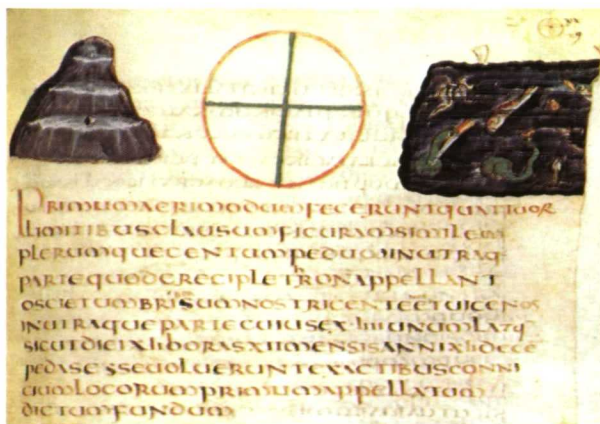 PRIMUMAGRIMODUMFECERUNTQUATTUOR
LIMITIBUSCLAUSUMFIGURAMSIMILEM
PLERUMQUECENTUMPEDUMINUTRAQ·
PARTEQUODGRECIPLETRONAPPELLANT
OSCIETUMBRISUMNOSTRICENTEETUICENOS
INUTRAQUEPARTECUIUSEX·IIIIUNUMLATQ
SICUTDIEIXIIHORASXIIMENSISANNIXIIDECE
PEDASESSEUOLUERUNTEXACTIBUSCONNI
CIUMLOCORUMPRIMUMAPPELLATUM
DICTUMFUNDUM